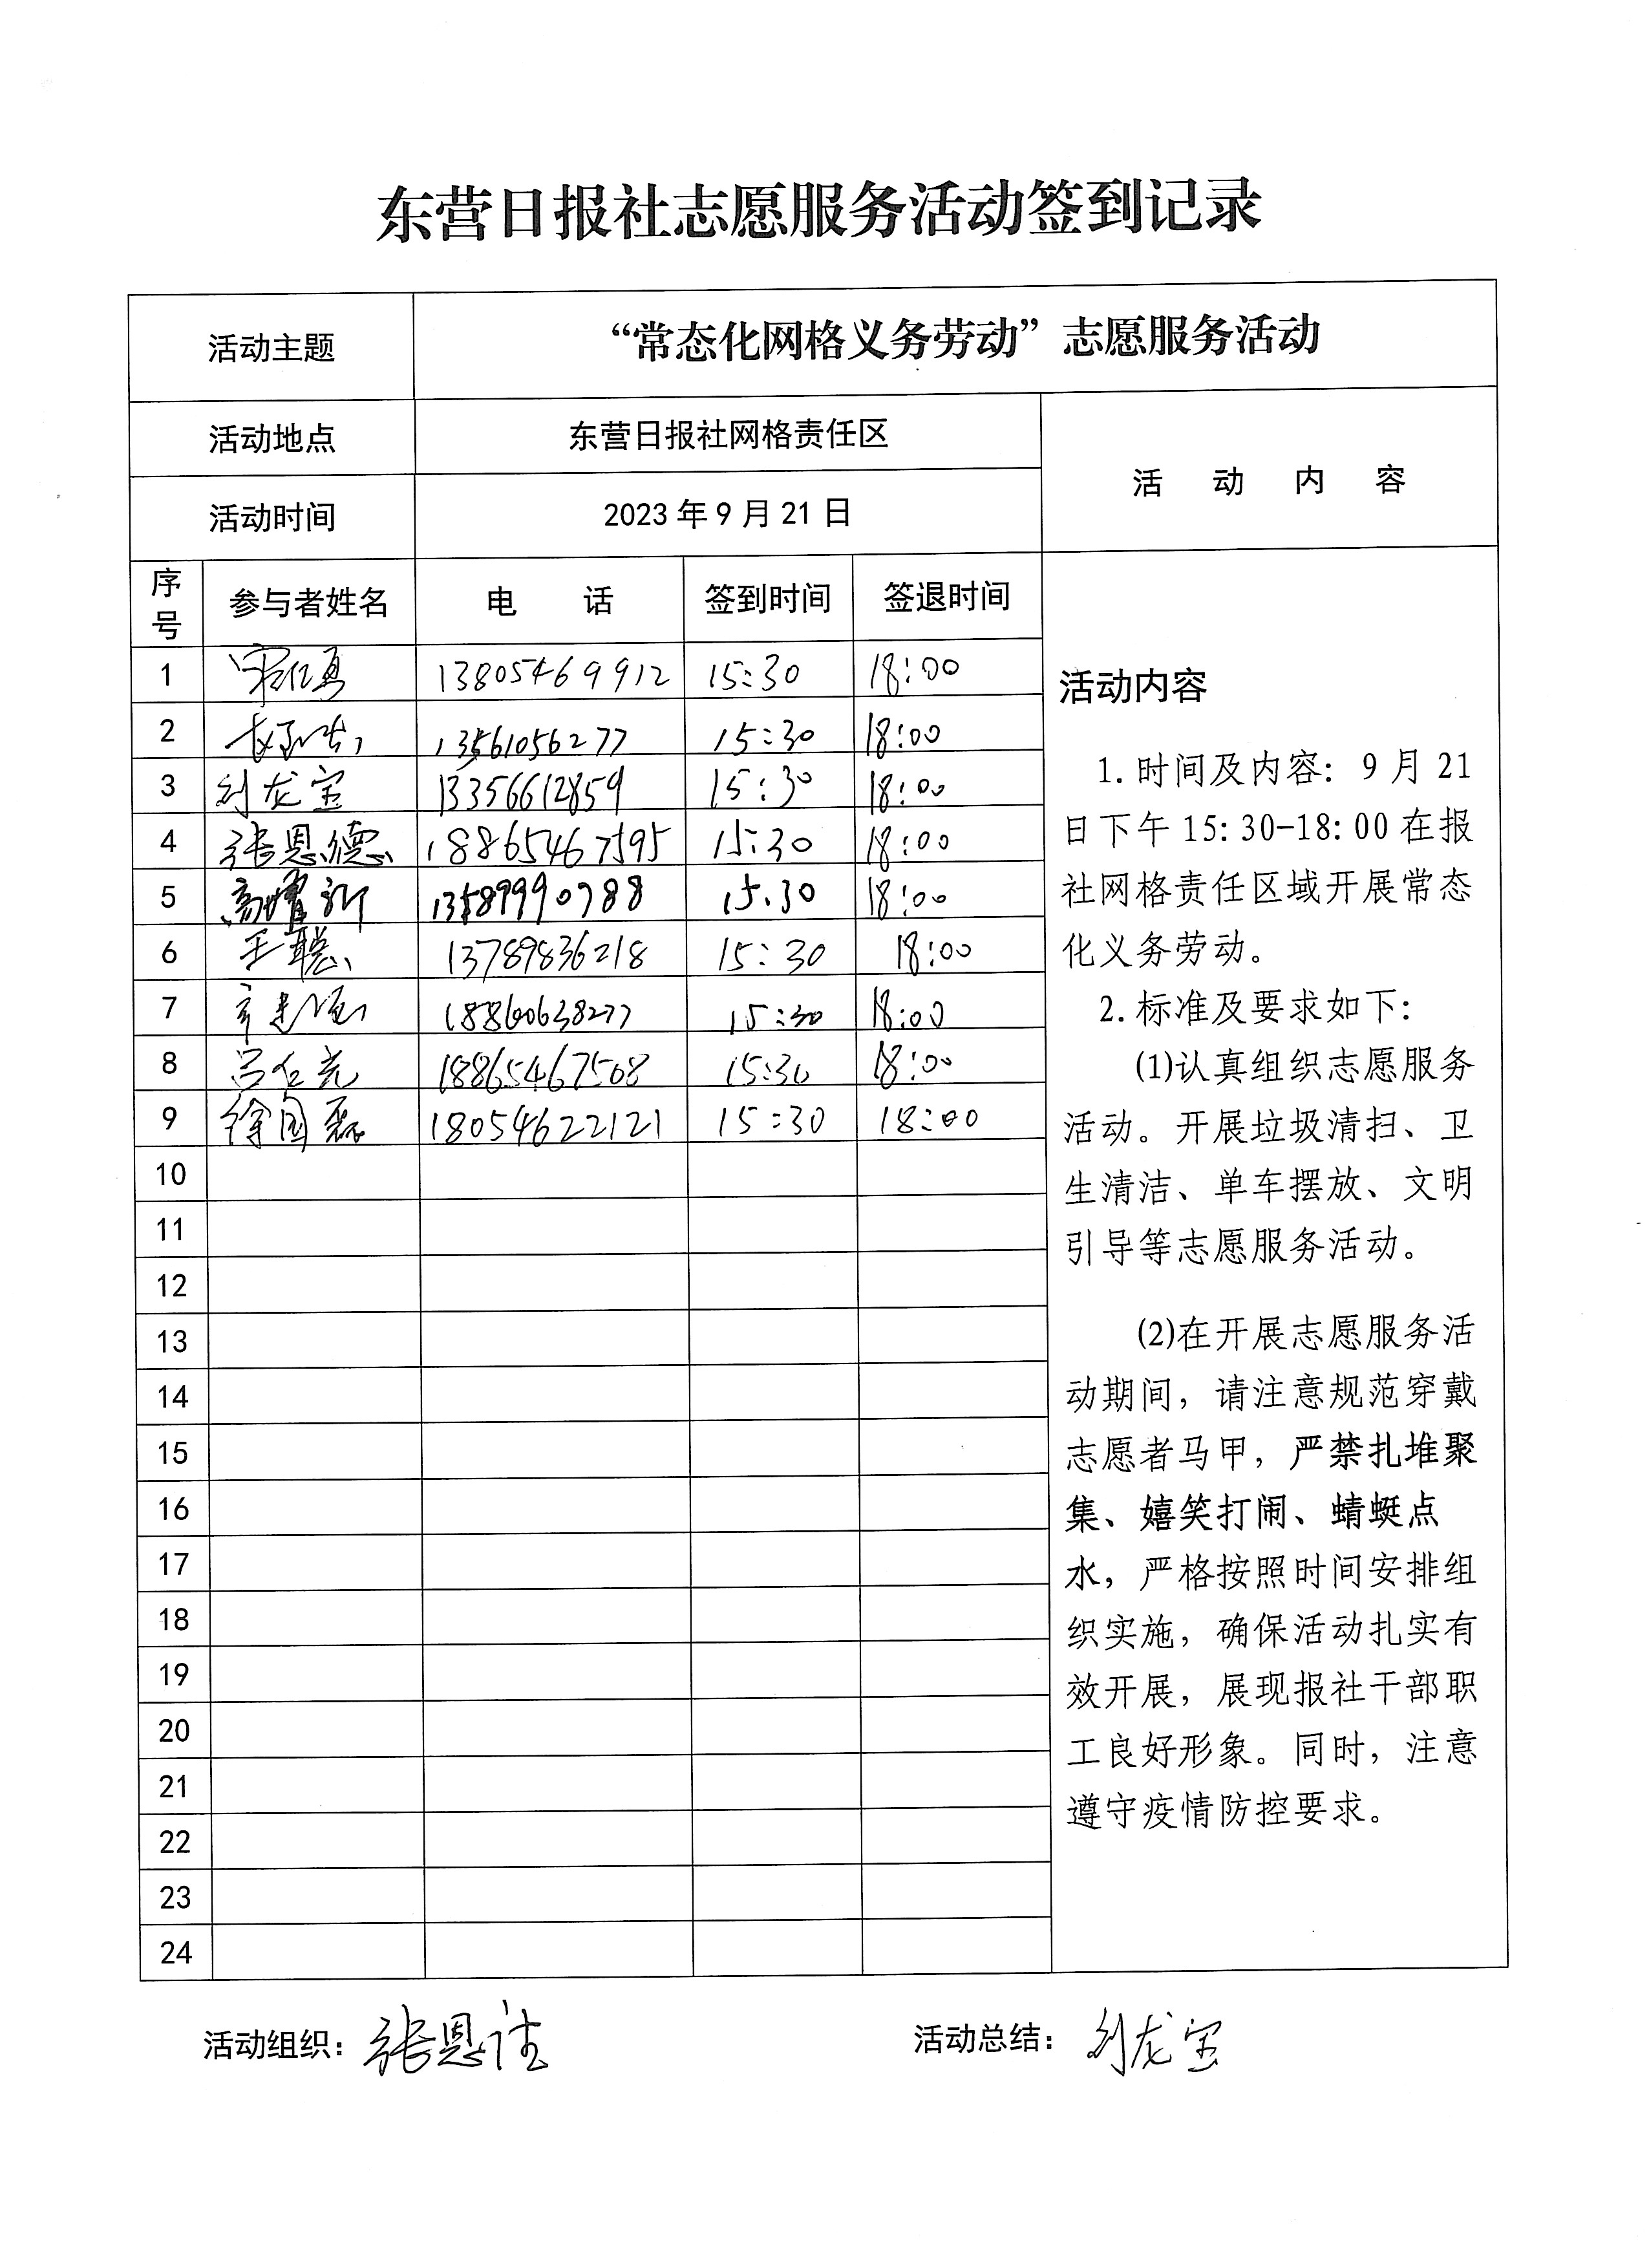 东营日报社志愿服务活动签到记录
活动主题 “常态化网格义务劳动”志愿服务活动
活动地点 东营日报社网格责任区
活动时间 2023年9月21日
活 动 内 容
序号 参与者姓名 电 话 签到时间 签退时间
1 宋仁勇 13805469912 15:30 18:00
2 13561056277 15:30 18:00
3 刘龙宝 13356612859 15:30 18:00
4 张恩德 18865467595 15:30 18:00
5 高耀新 13589990788 15:30 18:00
6 王聪 13789836218 15:30 18:00
7 18860638277 15:30 18:00
8 吕仁光 18865467508 15:30 18:00
9 徐国磊 18054622121 15:30 18:00
10
11
12
13
14
15
16
17
18
19
20
21
22
23
24
活动内容
1.时间及内容：9月21
日下午15:30-18:00在报
社网格责任区域开展常态
化义务劳动。
2.标准及要求如下：
(1)认真组织志愿服务
活动。开展垃圾清扫、卫
生清洁、单车摆放、文明
引导等志愿服务活动。
(2)在开展志愿服务活
动期间，请注意规范穿戴
志愿者马甲，严禁扎堆聚
集、嬉笑打闹、蜻蜓点
水，严格按照时间安排组
织实施，确保活动扎实有
效开展，展现报社干部职
工良好形象。同时，注意
遵守疫情防控要求。
活动组织：张恩德
活动总结：刘龙宝